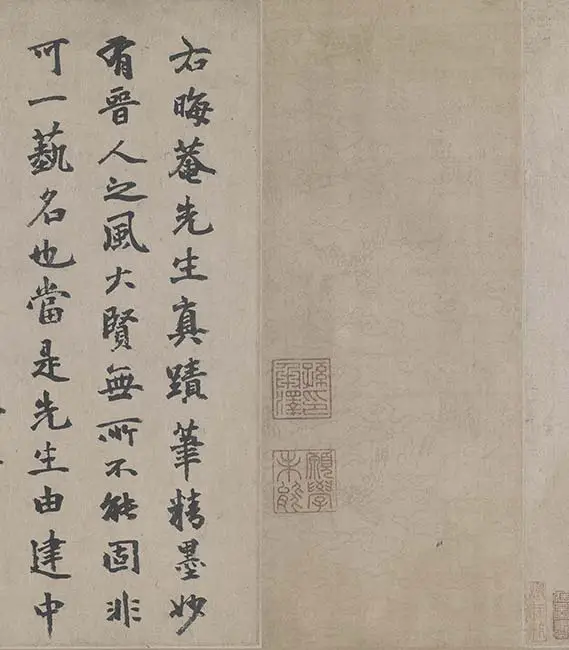 右晦菴先生真蹟筆精墨妙
有晉人之風大賢無所不能固非
可一藝名也當是先生由建中
孫承澤印
願學未能